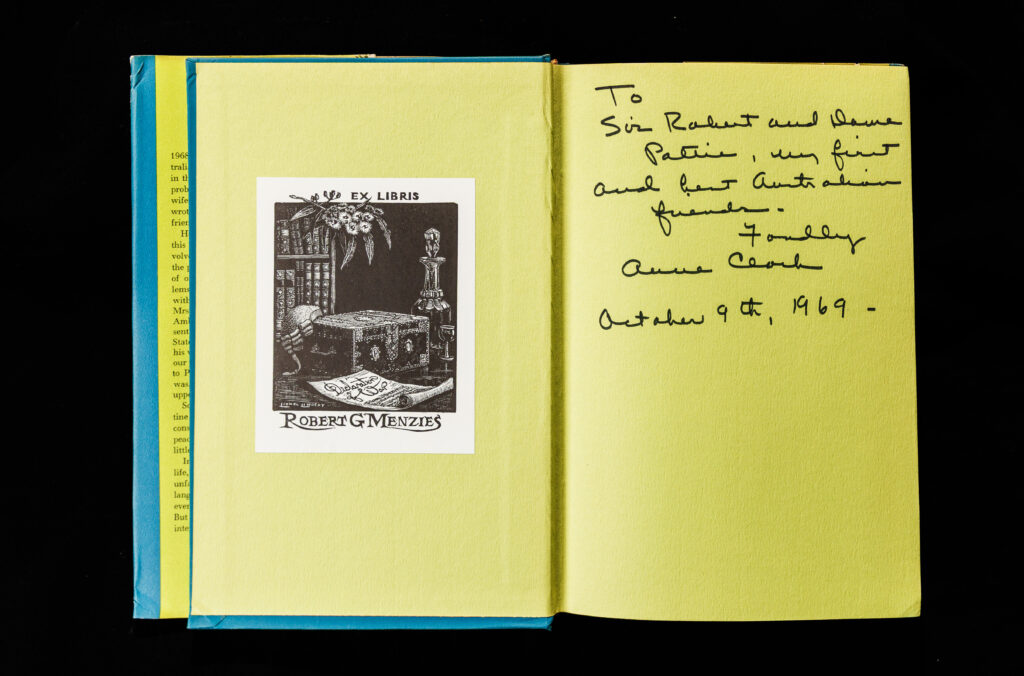 1968
trali
in th
prob
wife
wrot
frien
H
this
volv
the p
of o
lems
with
Mrs
Amb
sent
State
his v
our
to P
was
uppe
So
tine
cons
peac
little
In
life,
unfa
lang
even
But
inte
EX LIBRIS
Declaration
of War
LIONEL LINDSAY
ROBERT G MENZIES
To
Sir Robert and Dame
Pattie, my first
and best Australian
friends -
Fondly
Anne Clark
October 9th, 1969 -